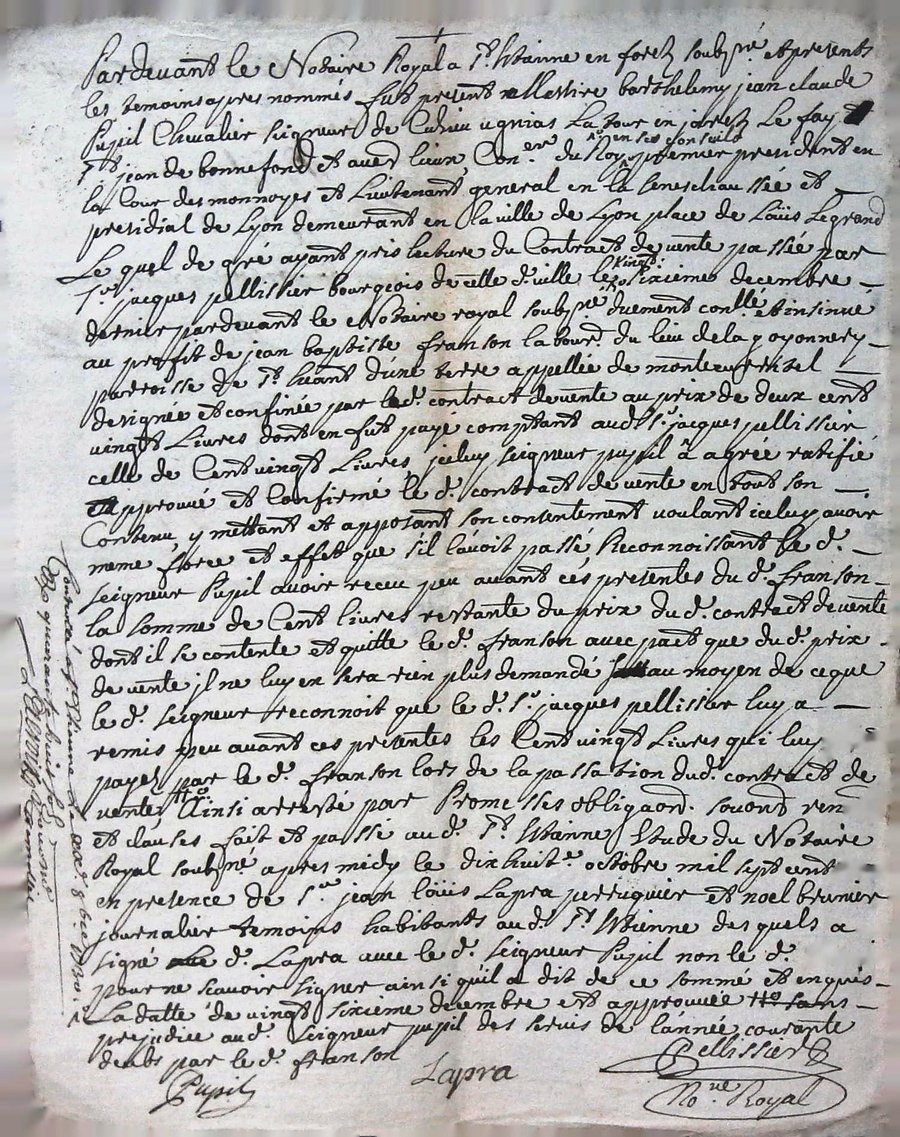 Pardevant le Notaire Royal a St. Etienne en forez soubsné. et presents
les temoins apres nommés fut present Messire barthelemy jean claude
Pupil Chevalier seigneur de Cuzieu ugnias La tour en jarest Le fay et
St. jean de bonnefond et autres lieux Coner. du Roy en ses conseils premier president en
la Cour des monnoyes et Lieutenant general en la seneschaussée et
presidial de Lyon demeurant en la ville de Lyon place de Loüis Le grand
Le quel de gré ayant pris lecture du Contract de vente passée par
Sr. jacques pellissier bourgeois de cette d. ville le vingt sixieme decembre
dernier pardevant le Notaire royal soubsne duement conllé. et insinué
au profit de jean baptiste franson labour. du lieu de la goyonnery
parroisse de St. heant d'une terre appellée de
designée et confinée par led. contract de vente au prix de deux cent
vingt Livres dont en fut payé comptant aud. Sr. jacques pellissier
celle de Cent vingt Livres, jceluy seigneur pupil â agréé ratifié
approuvé et Confirmé le d. contract de vente en tout son
Contenu y mettant et apposant son consentement voulant iceluy avoir
meme force et effet que s'il l'avoit passé Reconnoissant le d.
seigneur Pupil avoir recu peu avant cés presentes du d. franson
la somme de Cent livres restante du prix du d. contract de vente
dont il se contente et quitte le d. franson avec pact que du d. prix
de vente jl ne luy en sera rien plus demandé au moyen de ce que
le d. seigneur reconnoit que le d. Sr. jacques pellissier luy a
remis peu avant ces presentes les Cent vingt Livres qui luy
payer par le d. franson lors de la passation dud. contract de
vente Ainsi arresté par Promesses obligaõns. soumõns renõns
et clauses fait et passé aud. St. Etienne Etude du Notaire
Royal soubsne apres midy le dixhuite. octobre mil sept cent
en presence de Sr. jean loüis Lapra perruquier et noel brunier
journalier temoins habitants aud. St. Etienne des quels a
signé le d. Lapra avec le d. seigneur Pupil non le d.
pour ne scavoir signer ainsi quil a dit de ce sommé et enquis
La datte de vingt sixieme decembre est approuvée sans
prejudice aud. seigneur pupil des servis de l'année courante
deubs par le d. franson
Pellissier
Pupil Lapra
Nore Royal
Controlé a St. Etienne le 8bre
Reçu quarante huit sols